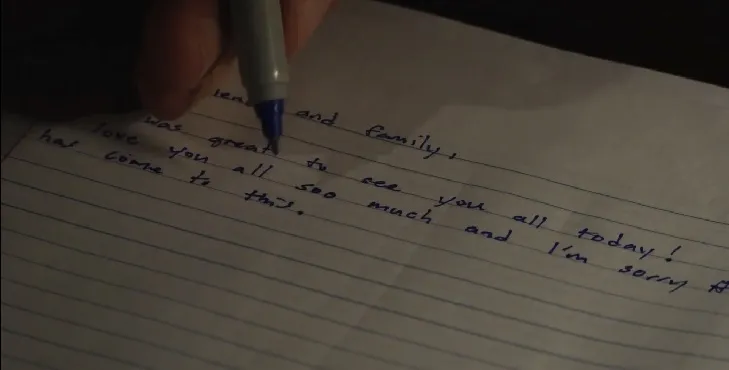 and family,
was great to see you all today!
love you all soo much and I'm sorry
has come to this.